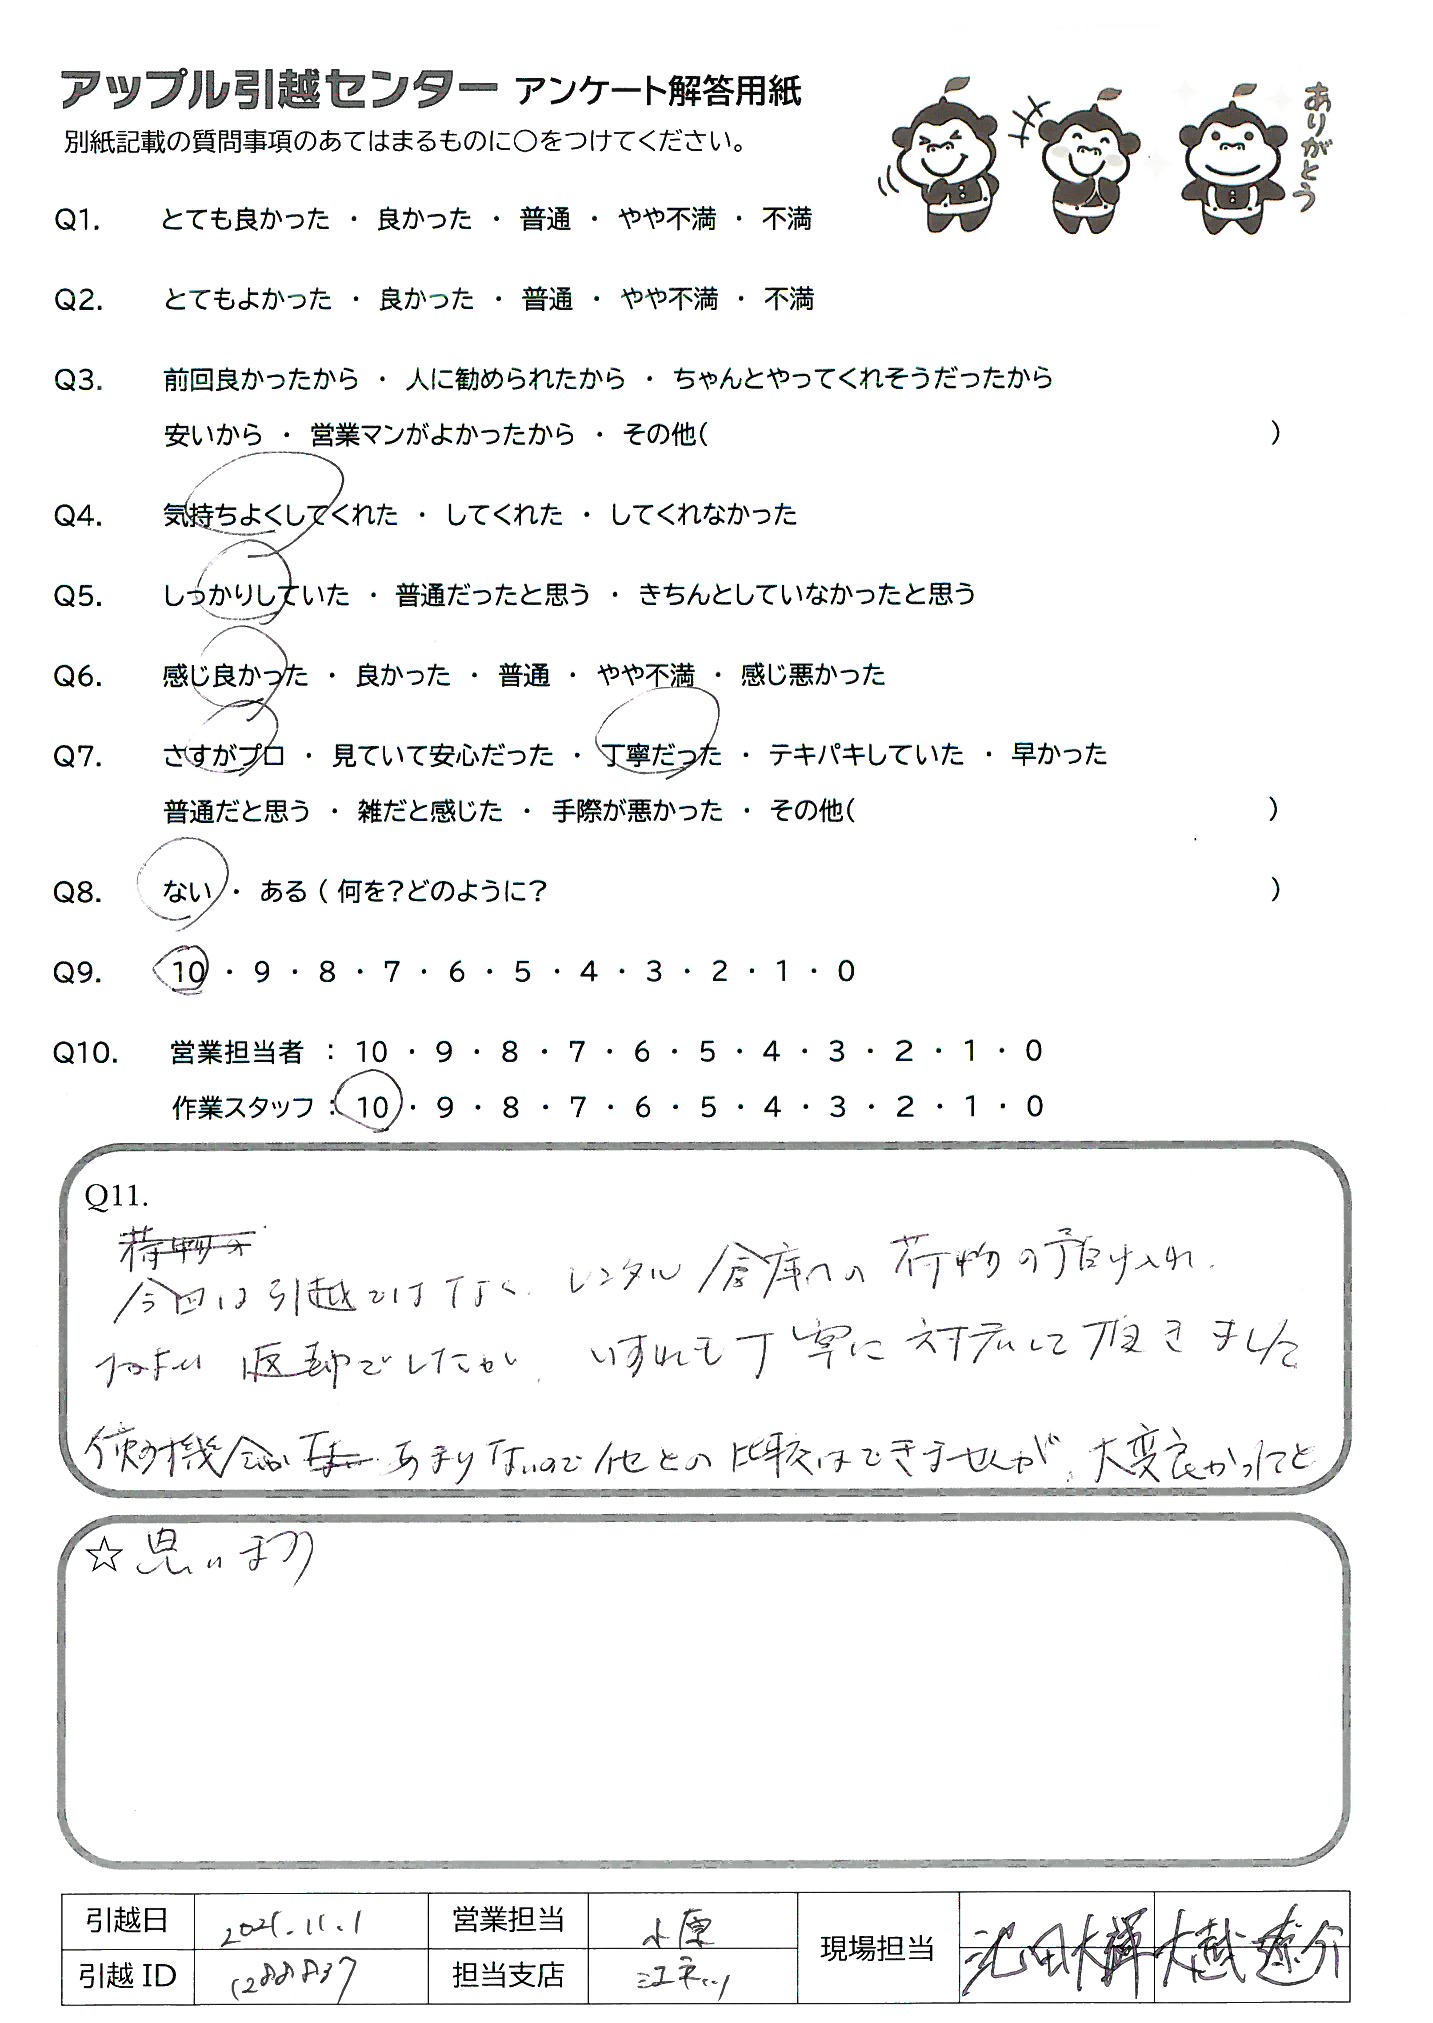 アップル引越センター アンケート解答用紙
別紙記載の質問事項のあてはまるものに〇をつけてください。
ありがとう
Q1. とても良かった ・ 良かった ・ 普通 ・ やや不満 ・ 不満
Q2. とてもよかった ・ 良かった ・ 普通 ・ やや不満 ・ 不満
Q3. 前回良かったから ・ 人に勧められたから ・ ちゃんとやってくれそうだったから
安いから ・ 営業マンがよかったから ・ その他( )
Q4. 気持ちよくしてくれた ・ してくれた ・ してくれなかった
Q5. しっかりしていた ・ 普通だったと思う ・ きちんとしていなかったと思う
Q6. 感じ良かった ・ 良かった ・ 普通 ・ やや不満 ・ 感じ悪かった
Q7. さすがプロ ・ 見ていて安心だった ・ 丁寧だった ・ テキパキしていた ・ 早かった
普通だと思う ・ 雑だと感じた ・ 手際が悪かった ・ その他( )
Q8. ない ・ ある ( 何を?どのように? )
Q9. 10 ・ 9 ・ 8 ・ 7 ・ 6 ・ 5 ・ 4 ・ 3 ・ 2 ・ 1 ・ 0
Q10. 営業担当者 : 10 ・ 9 ・ 8 ・ 7 ・ 6 ・ 5 ・ 4 ・ 3 ・ 2 ・ 1 ・ 0
作業スタッフ : 10 ・ 9 ・ 8 ・ 7 ・ 6 ・ 5 ・ 4 ・ 3 ・ 2 ・ 1 ・ 0
Q11.
今回は引越ではなく、レンタル倉庫への荷物の預け入れ、
および返却でしたが、いずれも丁寧に対応して頂きました
使う機会があまりないので他との比較はできませんが、大変良かったと
☆ 思います
引越日 2025.11.1 営業担当 小原 現場担当 池田大輝 大越遼介
引越ID 1288837 担当支店